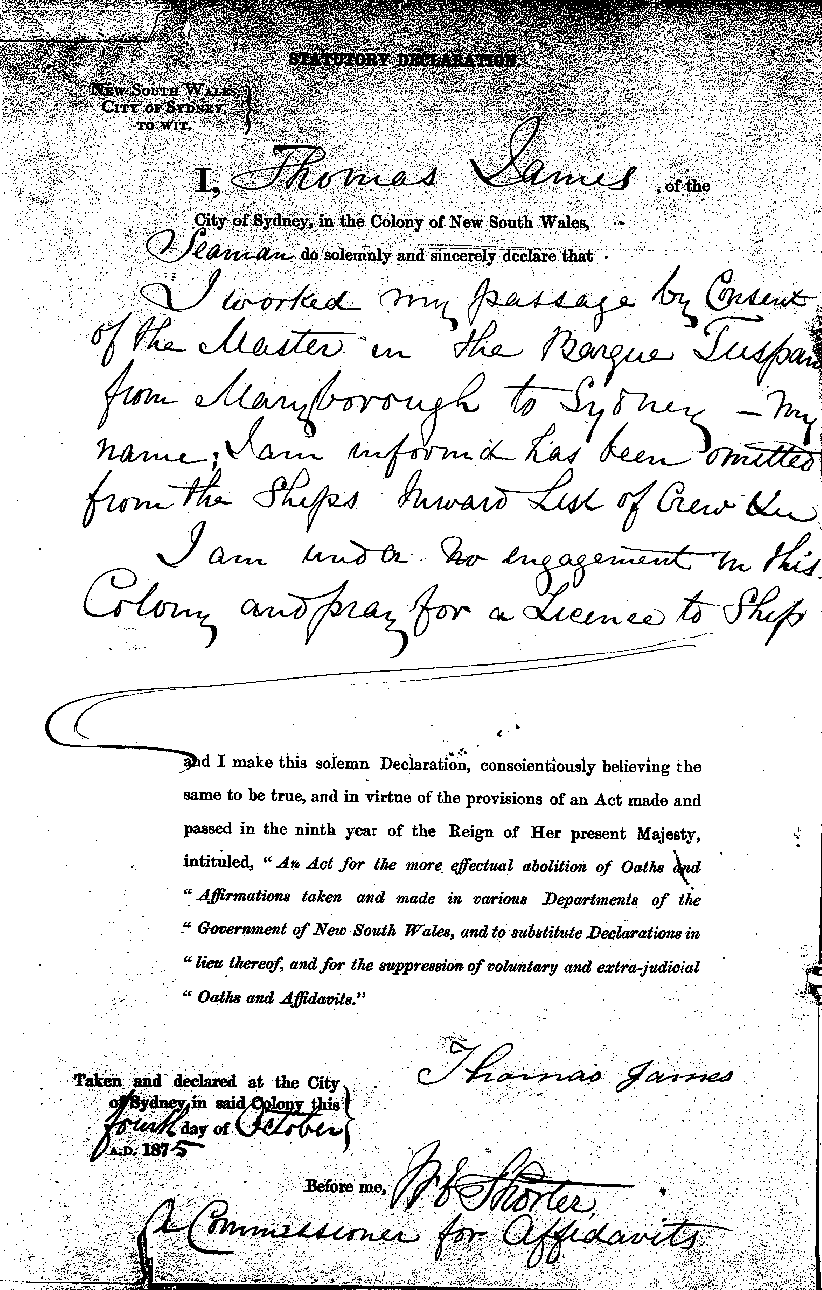 STATUTORY DECLARATION.
NEW SOUTH WALES,
CITY OF SYDNEY,
TO WIT.
I, Thomas James, of the
City of Sydney, in the Colony of New South Wales,
Seaman do solemnly and sincerely declare that
I worked my passage by Consent
of the Master in the Barque Tuspan
from Maryborough to Sydney – My
name, I am informed has been omitted
from the Ships Inward List of Crew
I am under no engagement in this
Colony and pray for a Licence to Ship
and I make this solemn Declaration, conscientiously believing the
same to be true, and in virtue of the provisions of an Act made and
passed in the ninth year of the Reign of Her present Majesty,
intituled, "An Act for the more effectual abolition of Oaths and
"Affirmations taken and made in various Departments of the
"Government of New South Wales, and to substitute Declarations in
"lieu thereof, and for the suppression of voluntary and extra-judicial
"Oaths and Affidavits."
Thomas James
Taken and declared at the City
of Sydney, in said Colony this
fourth day of October
A.D. 1875
Before me, Shorter
A Commissioner for Affidavits